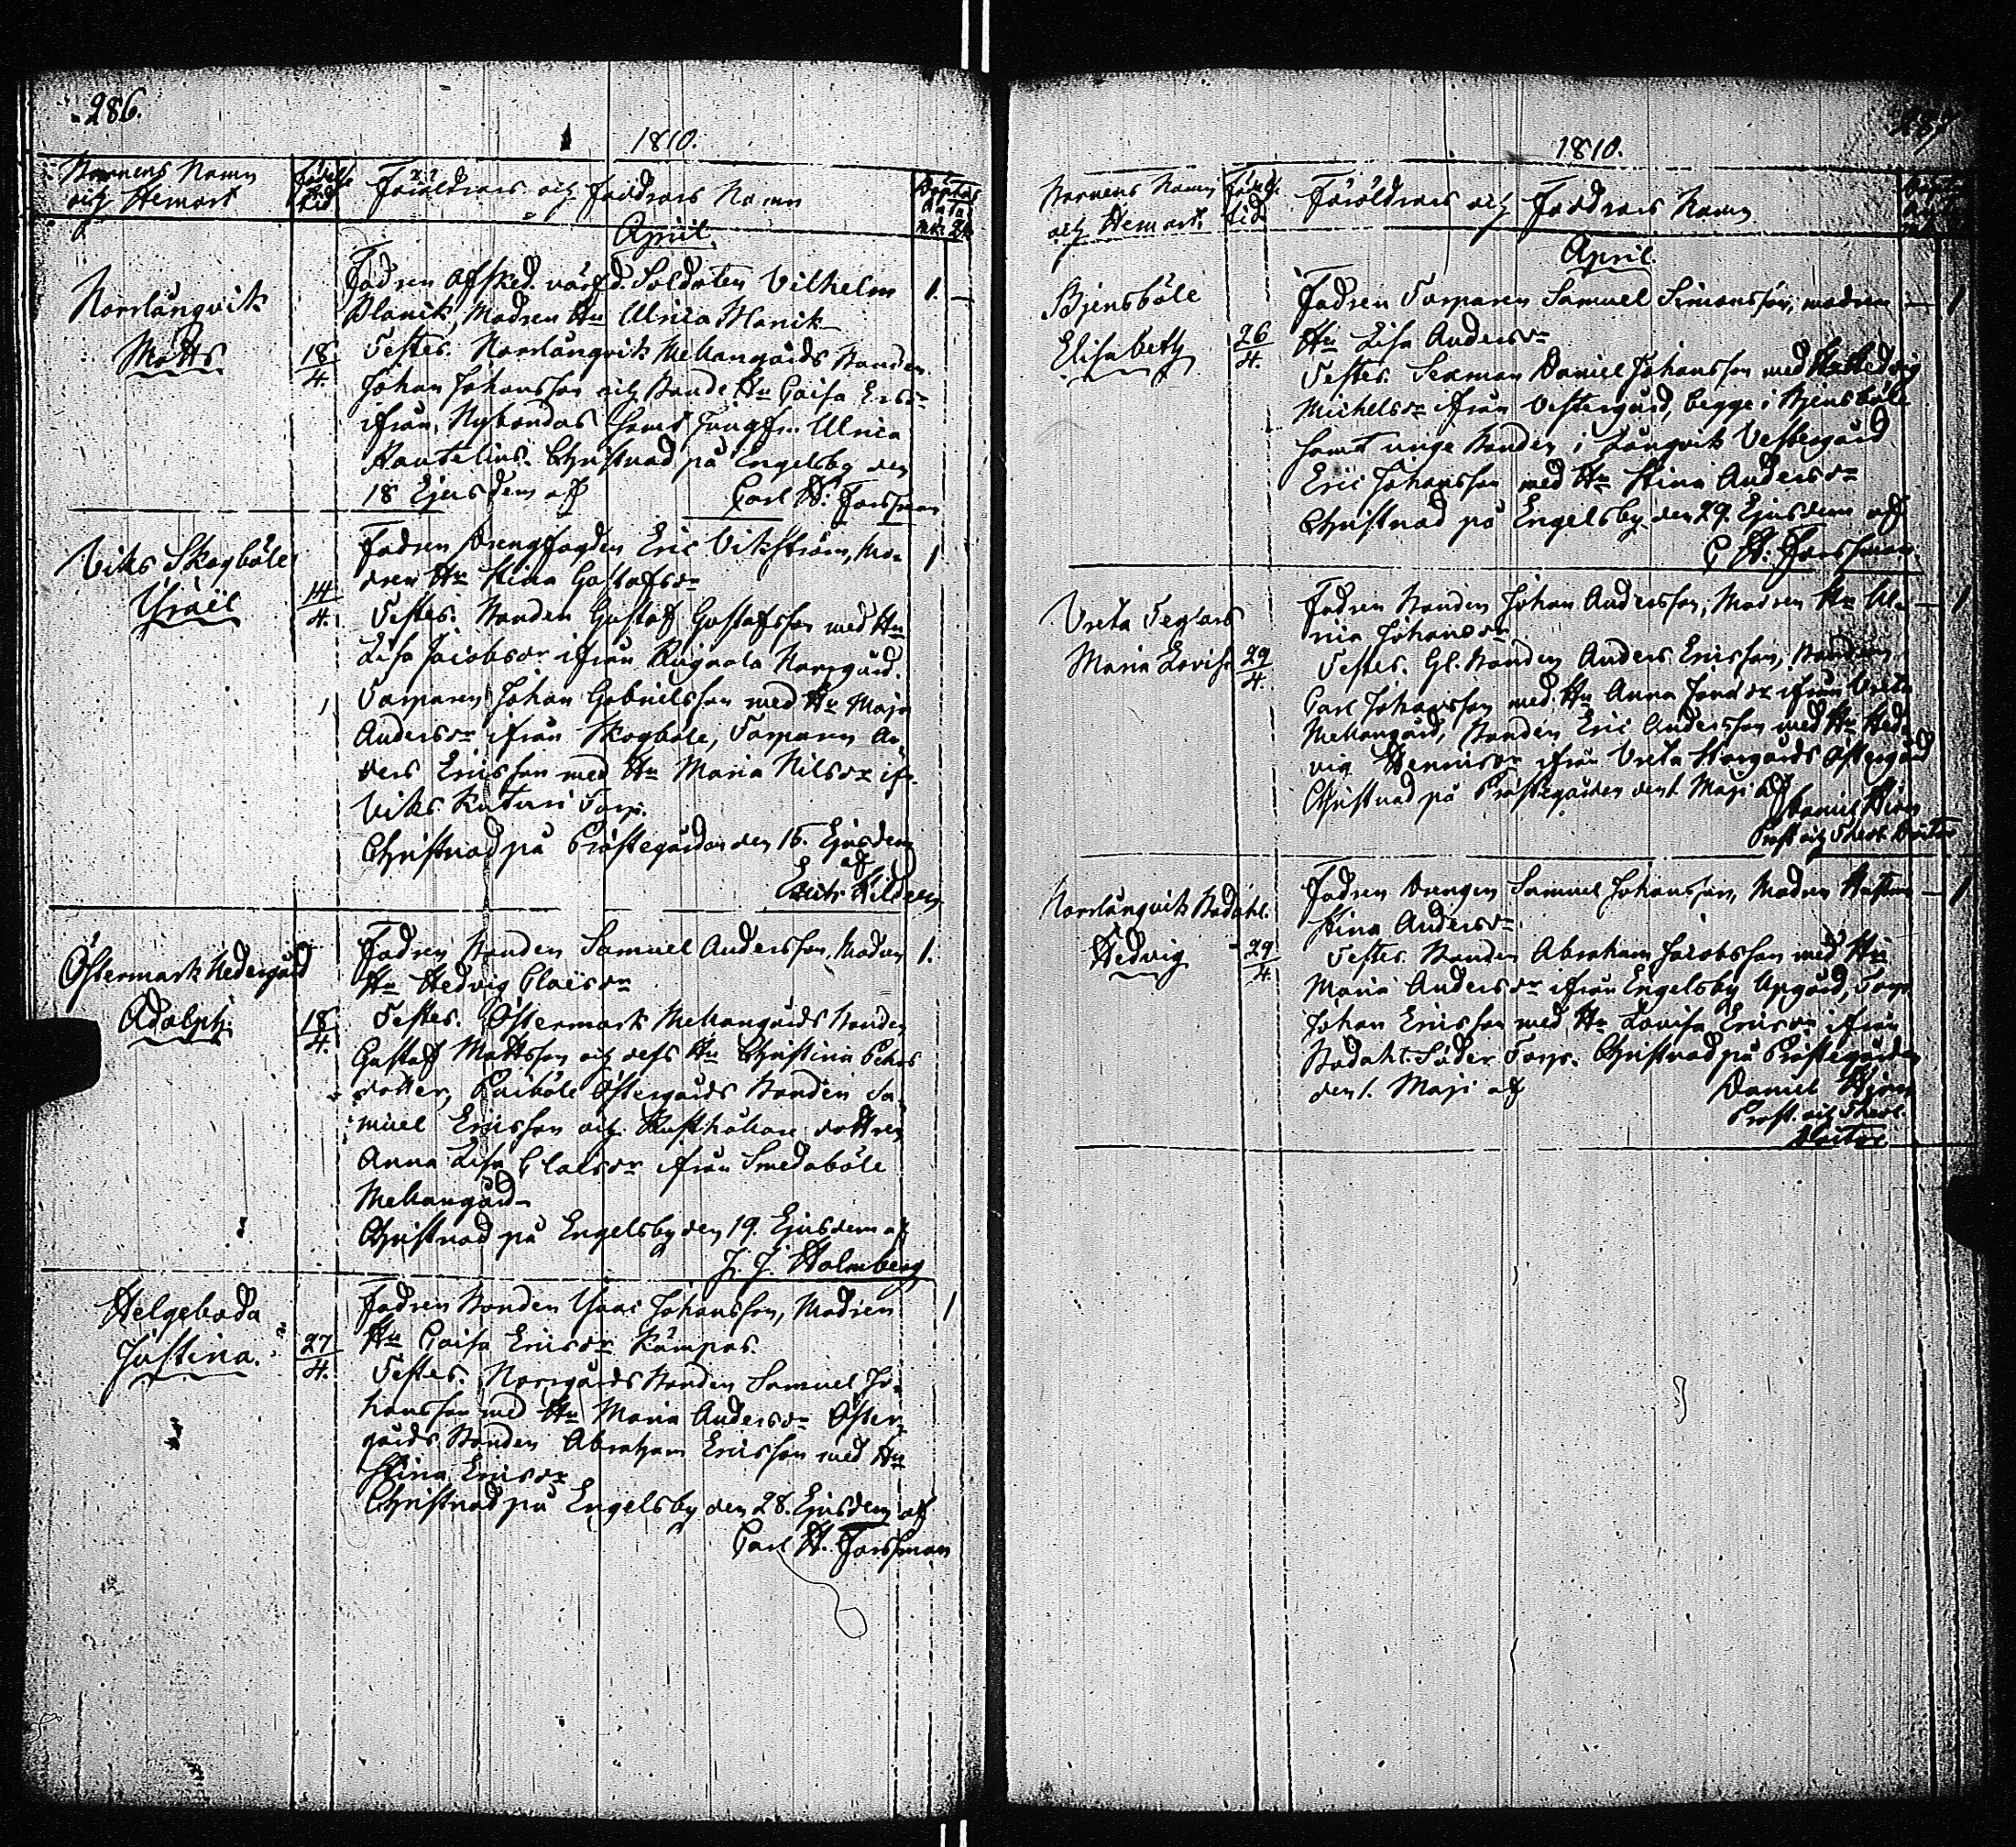 286.
1810.
Barnens Namn
och Hemort
Födelse
tid
Föräldrars och Faddrars Namn
April.
Norrlångvik
Matts
18
4.
Fadren afsked. värfd. Soldaten Vilhelm
Planik, Madren Hu Ulrica Manik
Testes. Norrlångvik Mellangårds Bonden
Johan Johansson och Bonde Hu Caisa Ersdr
ifrån Nybondas samt Jungfru Ulrica
Rautelius. Christnad på Engelsby den
18 Ejusdem af
Carl H. Forssman
1.
Viks Skogböle
Isräel
14
4.
Fadren Drengfogden Eric Vikström, Mo-
dren Hu Stina Gustafsdr
Testes. Bonden Gustaf Gustafsson med Hu
Lisa Jacobsdr ifrån Rugnola Norrgård.
Torparen Johan Gabrielsson med Hu Maja
Andersdr ifrån Skogböle, Torparen An-
ders Ericsson med Hu Maria Nilsdr ifr.
Viks Torp.
Christnad på Prostegården den 16. Ejusdem
af
1
Östermark Nedergård
Adolph.
18
4.
Fadren Bonden Samuel Andersson, Modren
Hu Hedvig Claësdr
Testes. Östermark Mellangårds Bonden
Gustaf Mattsson och dess Hu Christina Pehrs
dotter, Östergårds Bonden Sa-
muel Ericsson och Rusthållare dottren
Anna Lisa Claesdr ifrån Smedaböle
Mellangård
Christnad på Engelsby den 19. Ejusdem af
J. J. Holmberg
1.
Helgeboda
Justina.
27
4.
Fadren Bonden Isaac Johansson, Modren
Hu Caisa Ericsdr Kämpas.
Testes. Norrgårds Bonden Samuel Jo-
hansson med Hu Maria Andersdr Öster-
gårds Bonden Abraham Ericsson med Hu
Stina Ericsdr
Christnad på Engelsby den 28. Ejusdem af
Carl H. Forssman
1
287
1810.
Barnens Namn
och Hemort.
Födelse
tid
Föräldrars och Faddrars Namn
April.
Bjensböle
Elisabeth
26
4.
Fadren Torparen Samuel Simonsson, modren
Hu Lisa Andersdr
Testes. Sexman Daniel Johansson med Hu Hedvig
Michelsdr ifrån Vestergård, begge i Bjensböle
samt unge Bonden i Långvik Vestergård
Eric Johansson med Hu Stina Andersdr
Christnad på Engelsby den 29. Ejusdem af
C H. Forssman
1
Vreta Teglars
Maria Lovisa
29
4.
Fadren Bonden Johan Andersson, Modren Hu Ul-
rica Johansdr
Testes. Gl. Bonden Anders Ericsson, Bonden
Carl Johansson med Hu Anna Jonsdr ifrån Vreta
Mellangård, Bonden Eric Andersson med Hu Hed-
vig Henricsdr ifrån Vreta Storgårds Östergård
Christnad på Prostegården den 1. Maji af
Daniel Hjon
Prost och Theol. Doctor
1
Norrlångvik Badahl.
Hedvig
29
4.
Fadren Drengen Samuel Johansson, Modren Hustru
Stina Andersdr
Testes. Bonden Abraham Jacobsson med Hu
Maria Andersdr ifrån Engelsby Upgård, Torp.
Johan Ericsson med Hu Lovisa Ericsdr ifrån
Badahl Söder Torp. Christnad på Prostegården
den 1. Maji af
Daniel Hjon
Prost och Theol.
Doctor
1